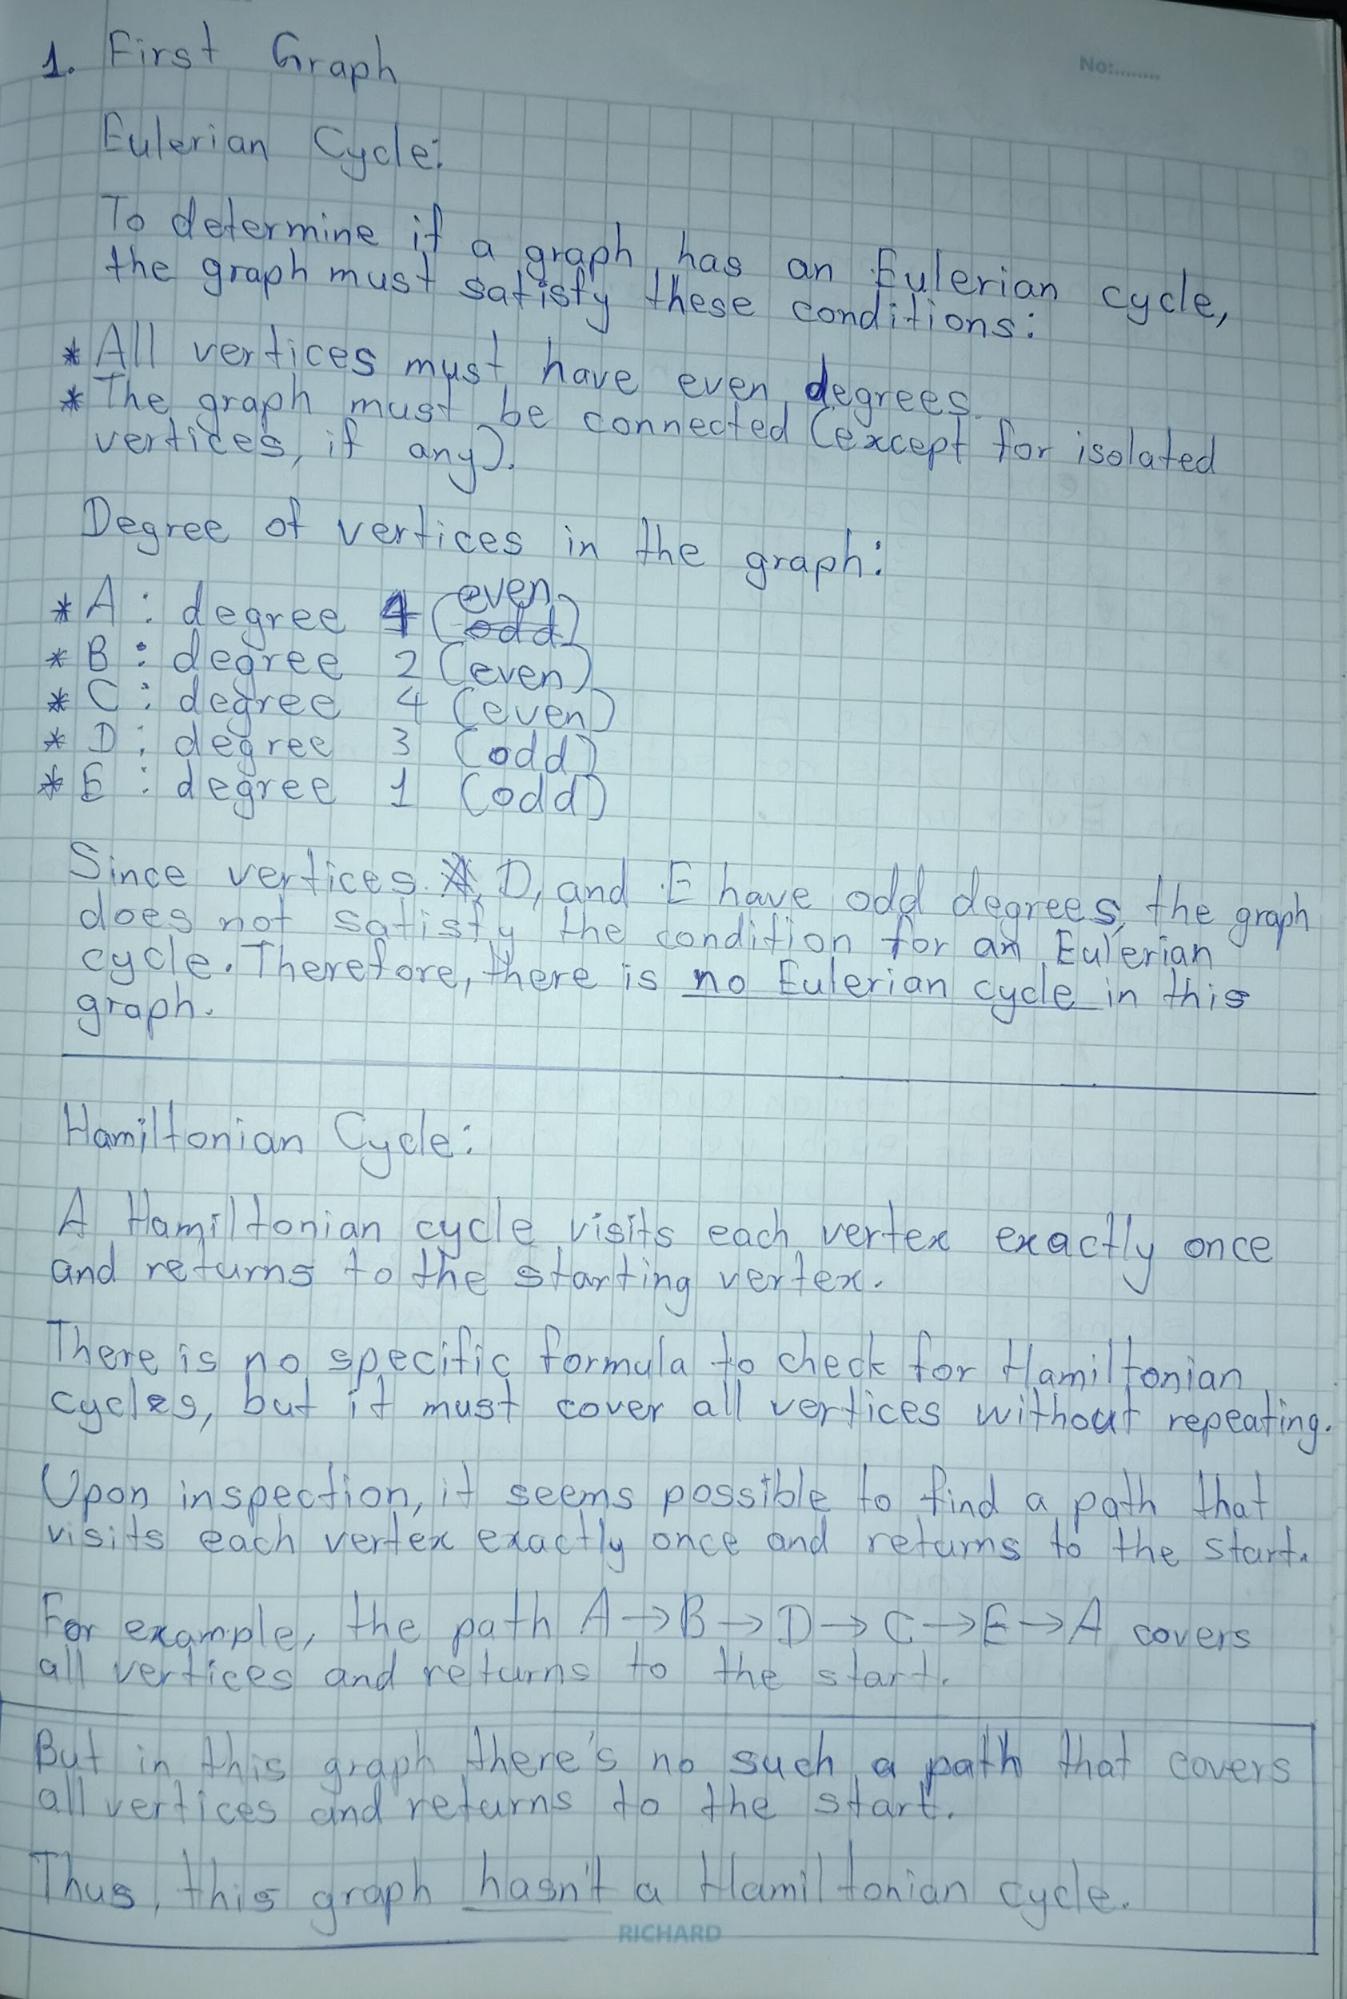 No:........
1. First Graph
Eulerian Cycle:
To determine if a graph has an Eulerian cycle,
the graph must satisfy these conditions:
* All vertices must have even degrees.
* The graph must be connected (except for isolated
vertices, if any).
Degree of vertices in the graph:
even
* A : degree 4 (odd)
* B : degree 2 (even)
* C : degree 4 (even)
* D : degree 3 (odd)
* E : degree 1 (odd)
Since vertices A, D, and E have odd degrees, the graph
does not satisfy the condition for an Eulerian
cycle. Therefore, there is no Eulerian cycle in this
graph.
Hamiltonian Cycle:
A Hamiltonian cycle visits each vertex exactly once
and returns to the starting vertex.
There is no specific formula to check for Hamiltonian
cycles, but it must cover all vertices without repeating.
Upon inspection, it seems possible to find a path that
visits each vertex exactly once and returns to the start.
For example, the path A→B→D→C→E→A covers
all vertices and returns to the start.
But in this graph there's no such a path that covers
all vertices and returns to the start.
Thus, this graph hasn't a Hamiltonian cycle.
RICHARD